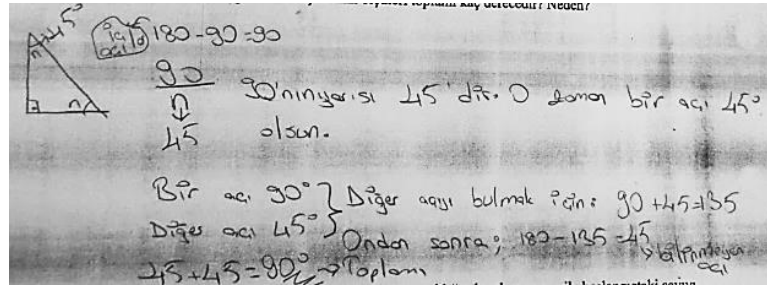 toplamı kaç derecedir? Neden?
45°
n
n
İç açı
180-90=90
90
45
90'nın yarısı 45'dir. O zaman bir açı 45°
olsun.
Bir açı 90°
Diğer açı 45°
Diğer açıyı bulmak için: 90+45=135
Ondan sonra; 180-135=45
bilinmeyen açı
45+45=90° → Toplamı